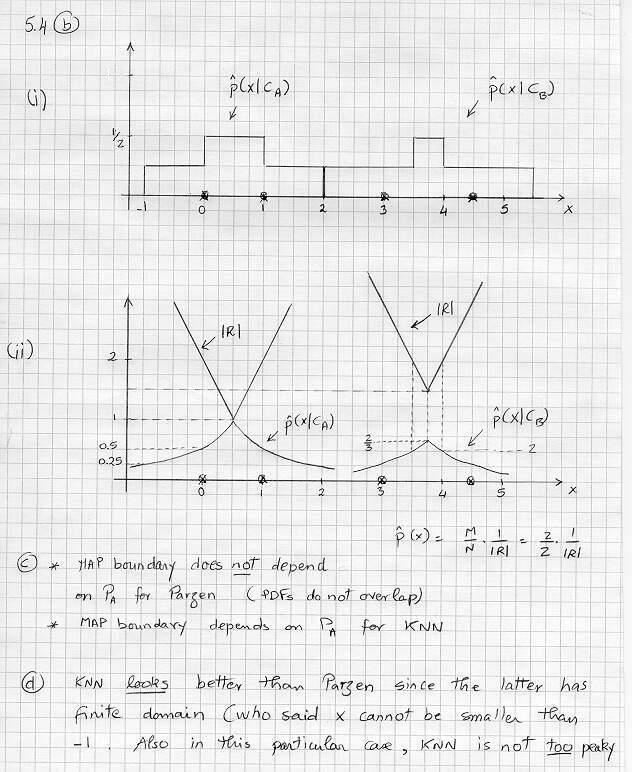 5.4 (b)
(i)
p̂(x|C_A)
p̂(x|C_B)
1/2
-1 0 1 2 3 4 5 x
(ii)
|R|
|R|
2
1
p̂(x|C_A)
p̂(x|C_B)
0.5
2/3
2
0.25
0 1 2 3 4 5 x
p̂(x) = M/N · 1/|R| = 2/2 · 1/|R|
(c) * MAP boundary does not depend
on P_A for Parzen (PDFs do not overlap)
* MAP boundary depends on P_A for KNN
(d) KNN looks better than Parzen since the latter has
finite domain (who said x cannot be smaller than
-1. Also in this particular case, KNN is not too peaky